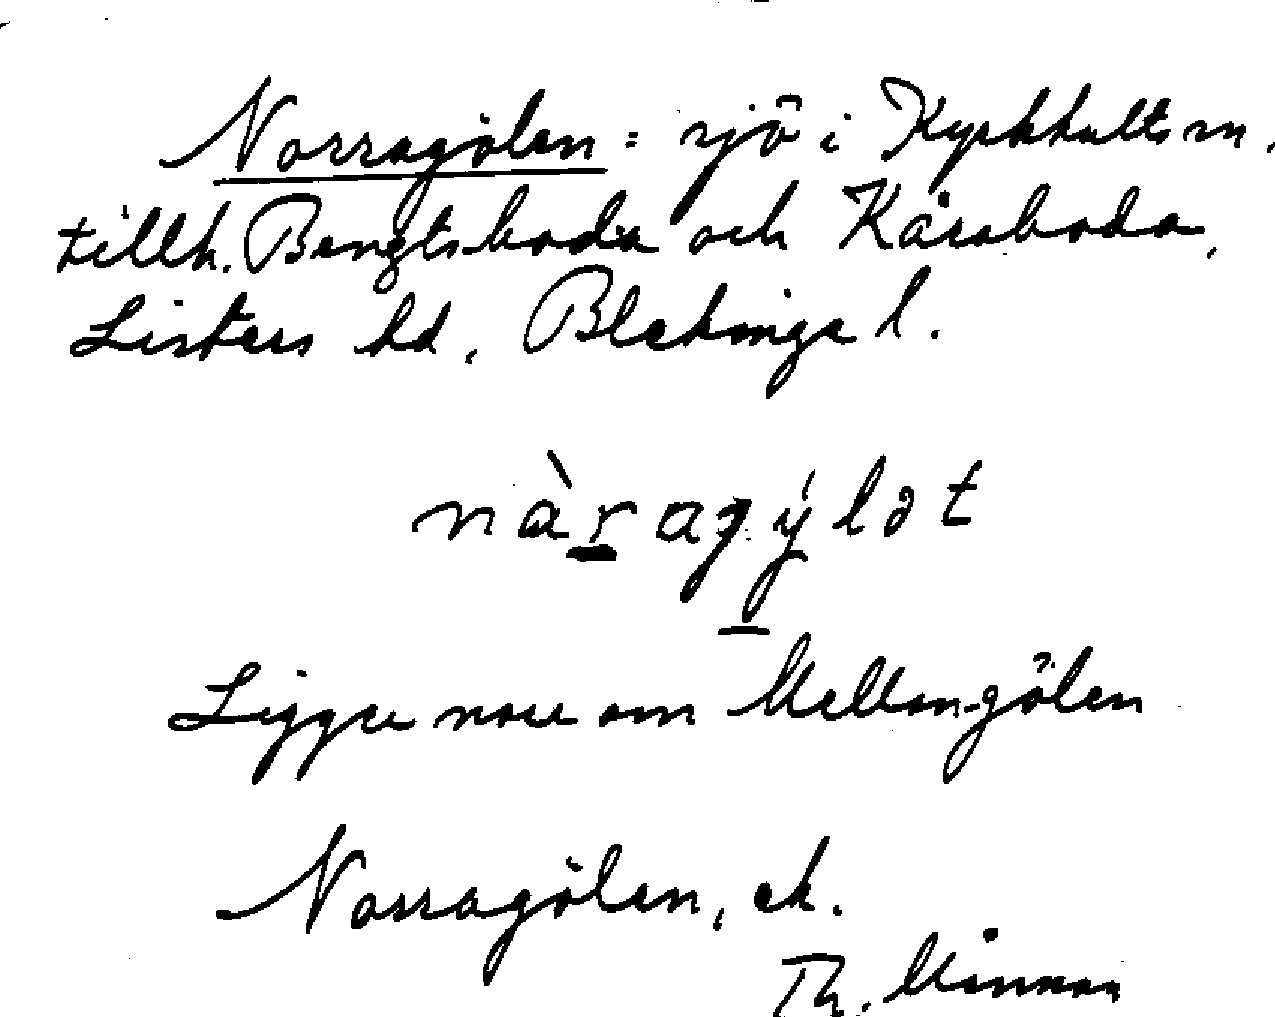 Norragölen: sjö i Kyrkhults sn,
tillh. Bengtsboda och Kåraboda,
Listers hd, Blekinge l.
nàragýlət
Ligger norr om Mellangölen
Norragölen, ek.
Th.